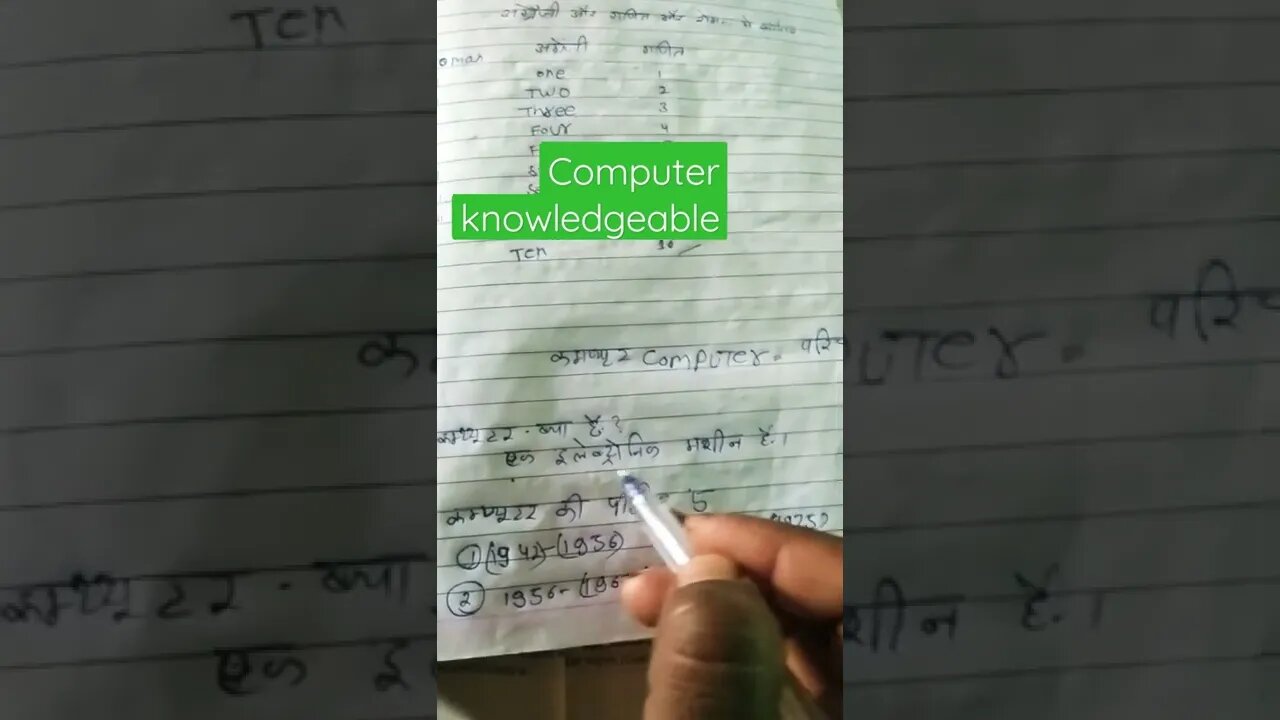 अंग्रेजी और गणित और रोमन के
oman अंग्रेजी गणित
one 1
TWO 2
Three 3
Four 4
F
Computer
knowledgeable
Ten 10
कमप्यूटर COMPUTER = परि
कम्प्यूटर - क्या हैं ?
एक इलेक्ट्रोनिक मशीन हैं।
कम्प्यूटर की = 5
① (1942)-(1956)
② 1956-(196